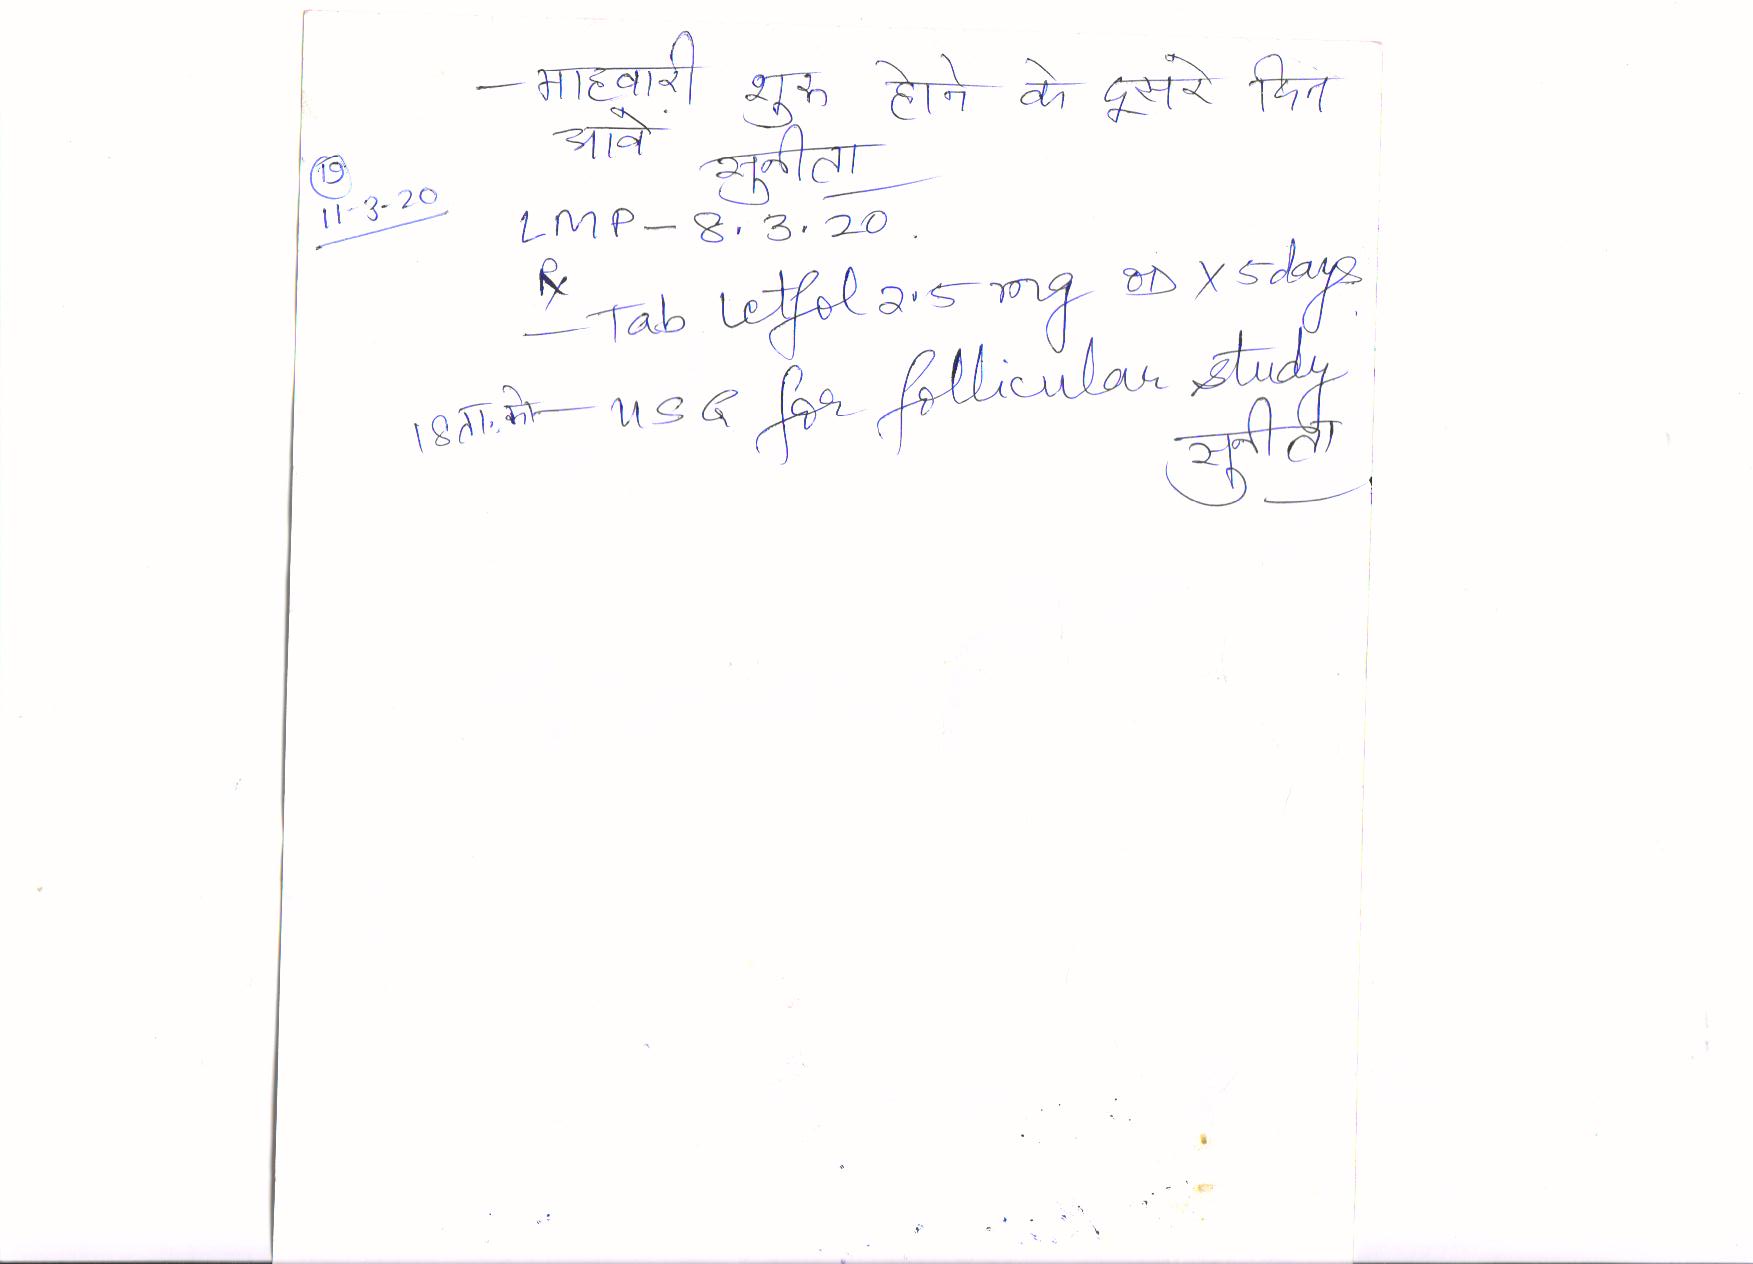 – माहवारी शुरू होने के दूसरे दिन
आवे
सुनीता
19
11-3-20
LMP – 8.3.20.
Rx
– Tab letfol 2.5 mg OD X 5 days
18 ता. को – USG for follicular study
सुनीता